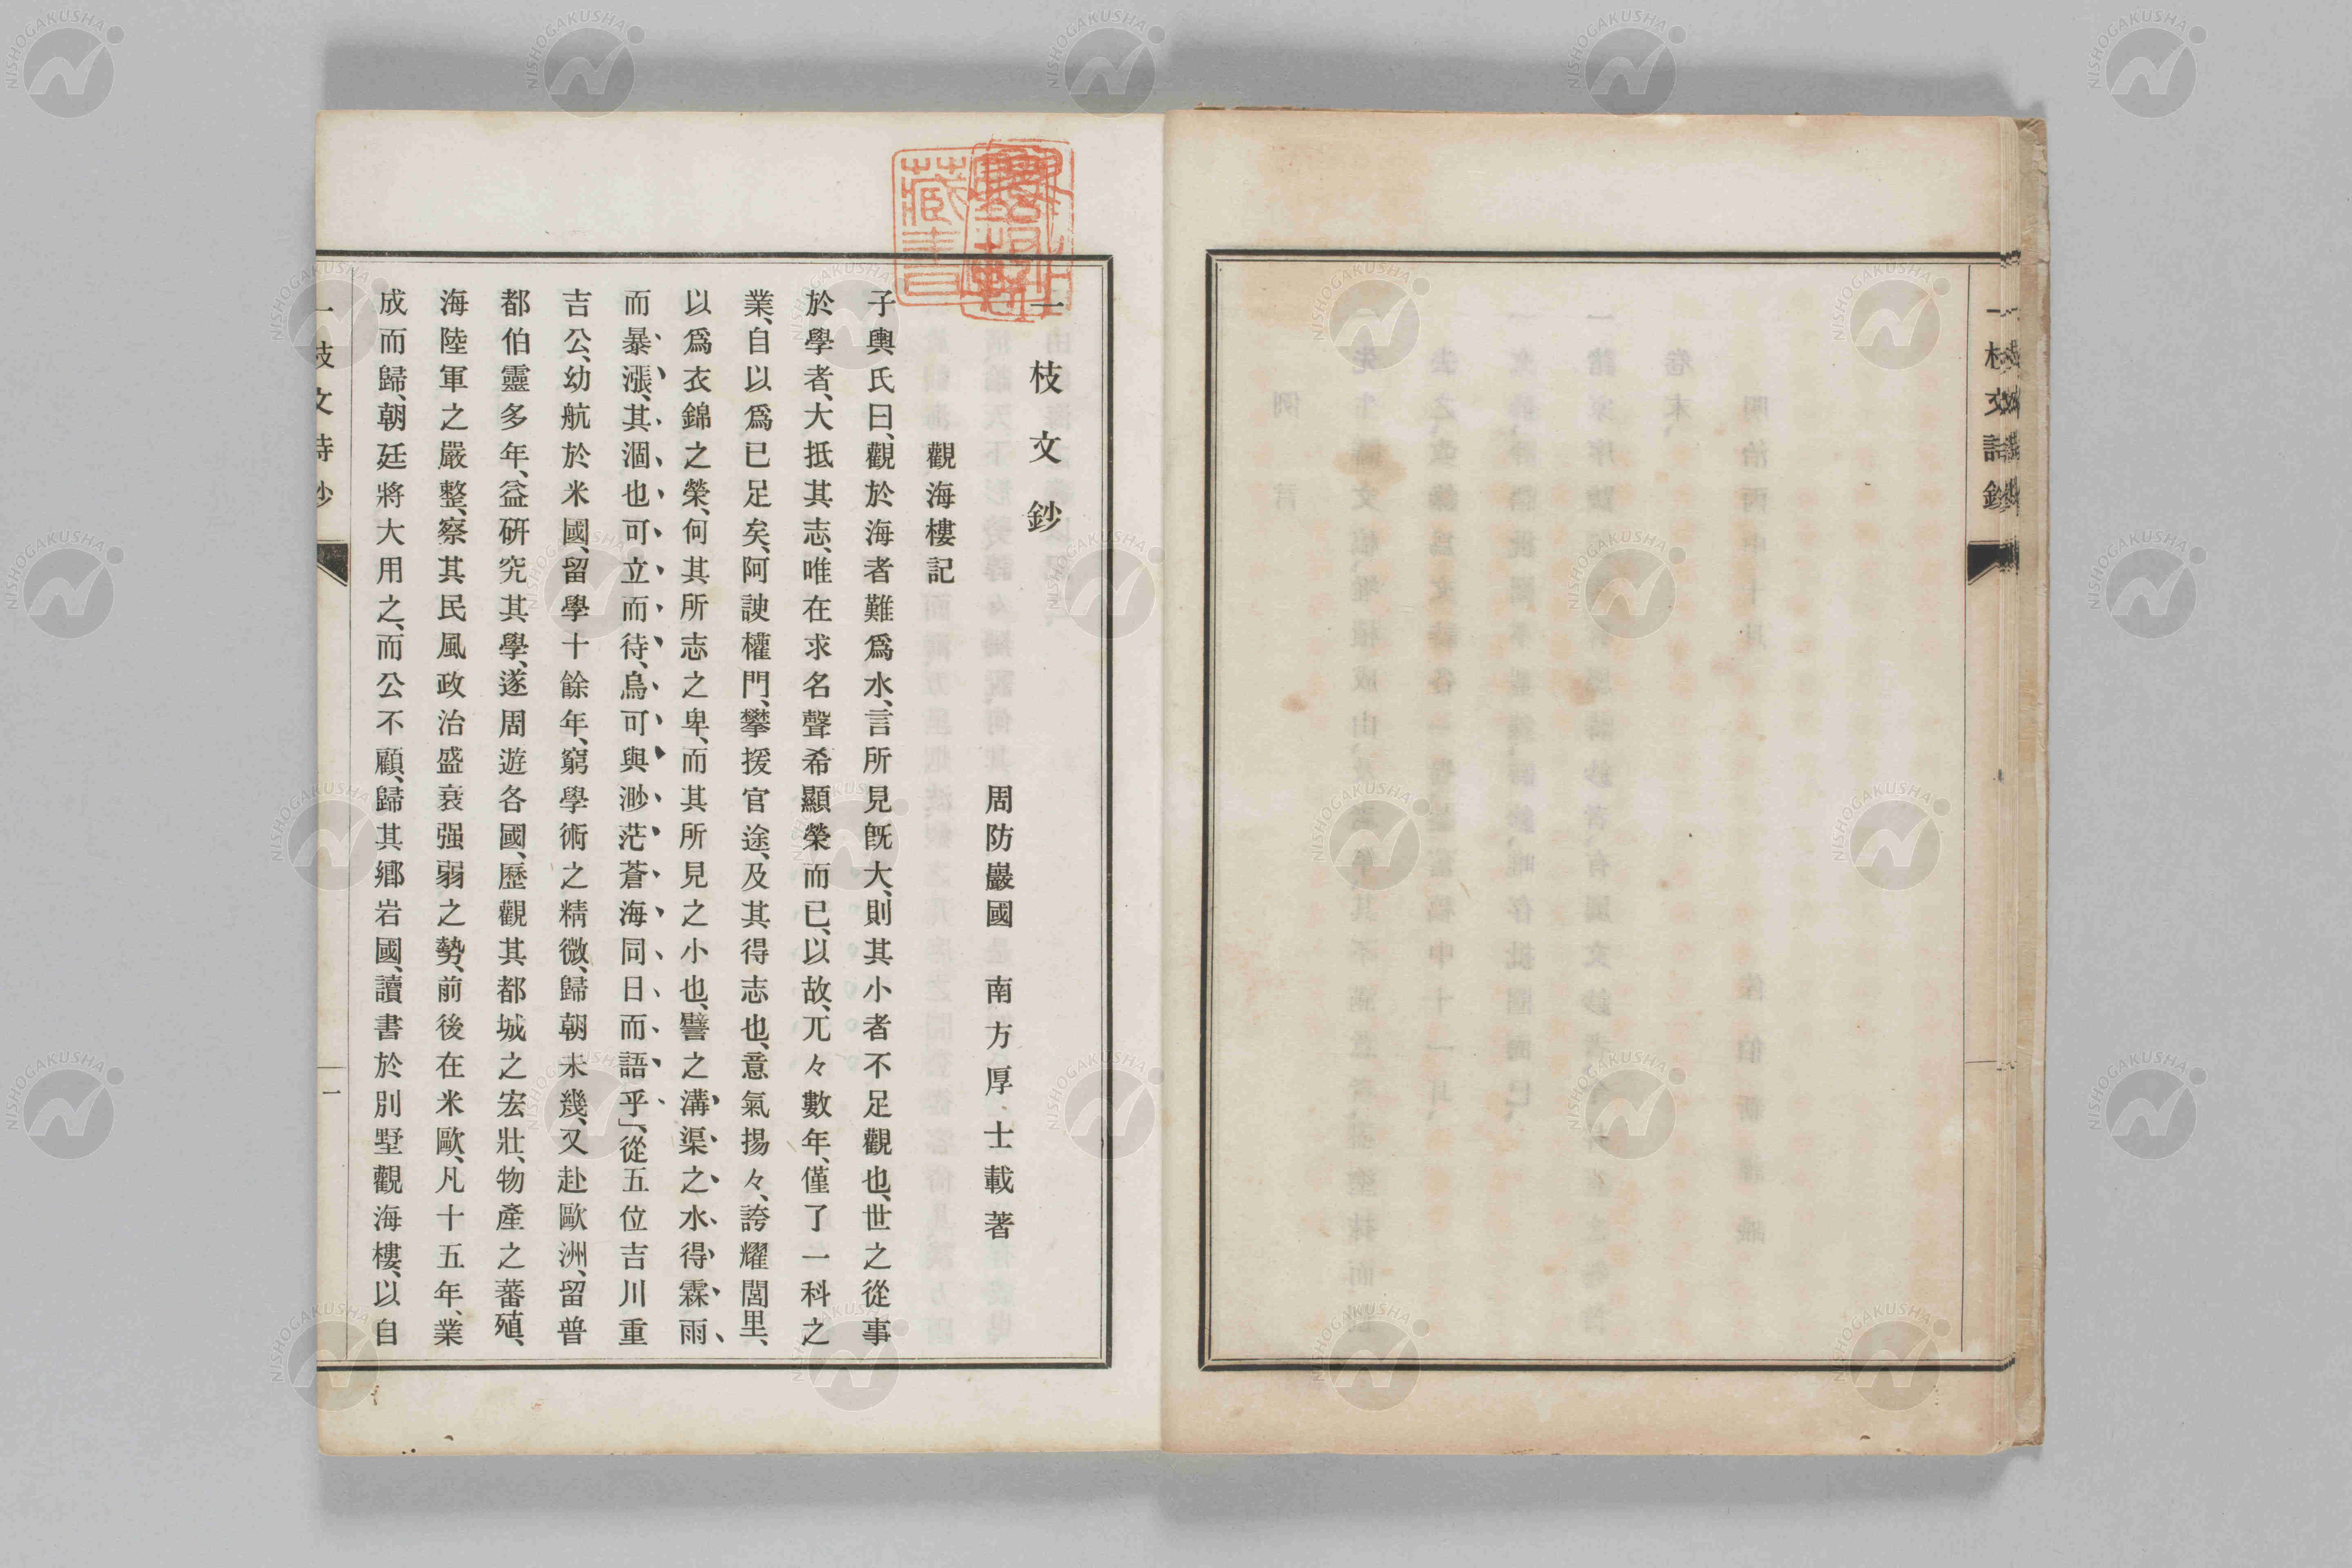 一枝文鈔
周防巖國 南方厚士載著
觀海樓記
子輿氏曰、觀於海者難爲水、言所見旣大、則其小者不足觀也、世之從事
於學者、大抵其志、唯在求名聲希顯榮而已、以故、兀々數年、僅了一科之
業、自以爲已足矣、阿諛權門、攀援官途、及其得志也、意氣揚々、誇耀閭里、
以爲衣錦之榮、何其所志之卑、而其所見之小也、譬之溝渠之水、得霖雨、
而暴漲、其涸也可立而待、烏可與渺茫蒼海同日而語乎」、從五位吉川重
吉公、幼航於米國、留學十餘年、窮學術之精微、歸朝未幾、又赴歐洲、留普
都伯靈多年、益研究其學、遂周遊各國、歷觀其都城之宏壯、物產之蕃殖、
海陸軍之嚴整、察其民風政治盛衰强弱之勢、前後在米歐、凡十五年、業
成而歸、朝廷將大用之、而公不顧、歸其鄉岩國、讀書於別墅觀海樓、以自
一枝文詩鈔
一
藏書
NISHOGAKUSHA